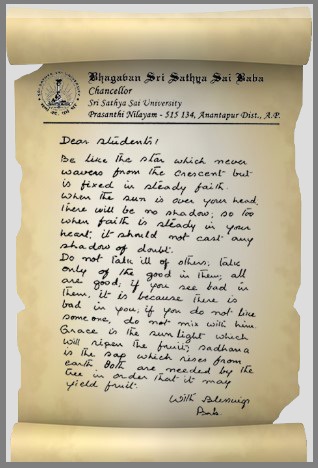 Bhagavan Sri Sathya Sai Baba
Chancellor
Sri Sathya Sai University
Prasanthi Nilayam - 515 134, Anantapur Dist., A.P.
Dear students!
Be like the star which never
wavers from the crescent but
is fixed in steady faith.
When the sun is over your head,
there will be no shadow; so too
when faith is steady in your
heart, it should not cast any
shadow of doubt.
Do not talk ill of others; take
only of the good in them; all
are good; if you see bad in
them, it is because there is
bad in you; if you do not like
someone, do not mix with him.
Grace is the sunlight which
will ripen the fruit; sadhana
is the sap which rises from
earth Both are needed by the
tree in order that it may
yield fruit.
With Blessings
Baba